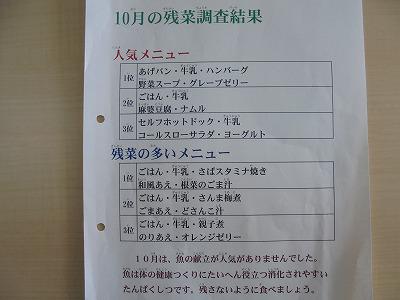 10月の残菜調査結果
人気メニュー
1位 あげパン・牛乳・ハンバーグ
野菜スープ・グレープゼリー
2位 ごはん・牛乳
麻婆豆腐・ナムル
3位 セルフホットドック・牛乳
コールスローサラダ・ヨーグルト
残菜の多いメニュー
1位 ごはん・牛乳・さばスタミナ焼き
和風あえ・根菜のごま汁
2位 ごはん・牛乳・さんま梅煮
ごまあえ・どさんこ汁
3位 ごはん・牛乳・親子煮
のりあえ・オレンジゼリー
10月は、魚の献立が人気がありませんでした。
魚は体の健康つくりにたいへん役立つ消化されやすい
たんぱくしつです。残さないように食べましょう。